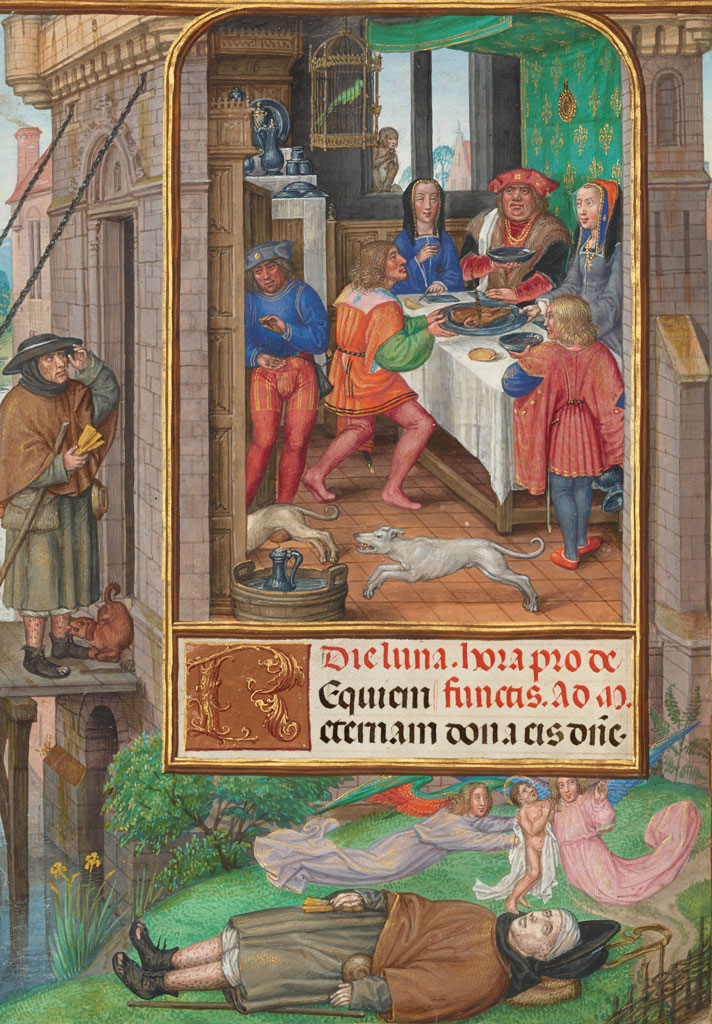 Die luna. hora pro de
REquiem functis. Ad M.
eternam dona eis dñe.